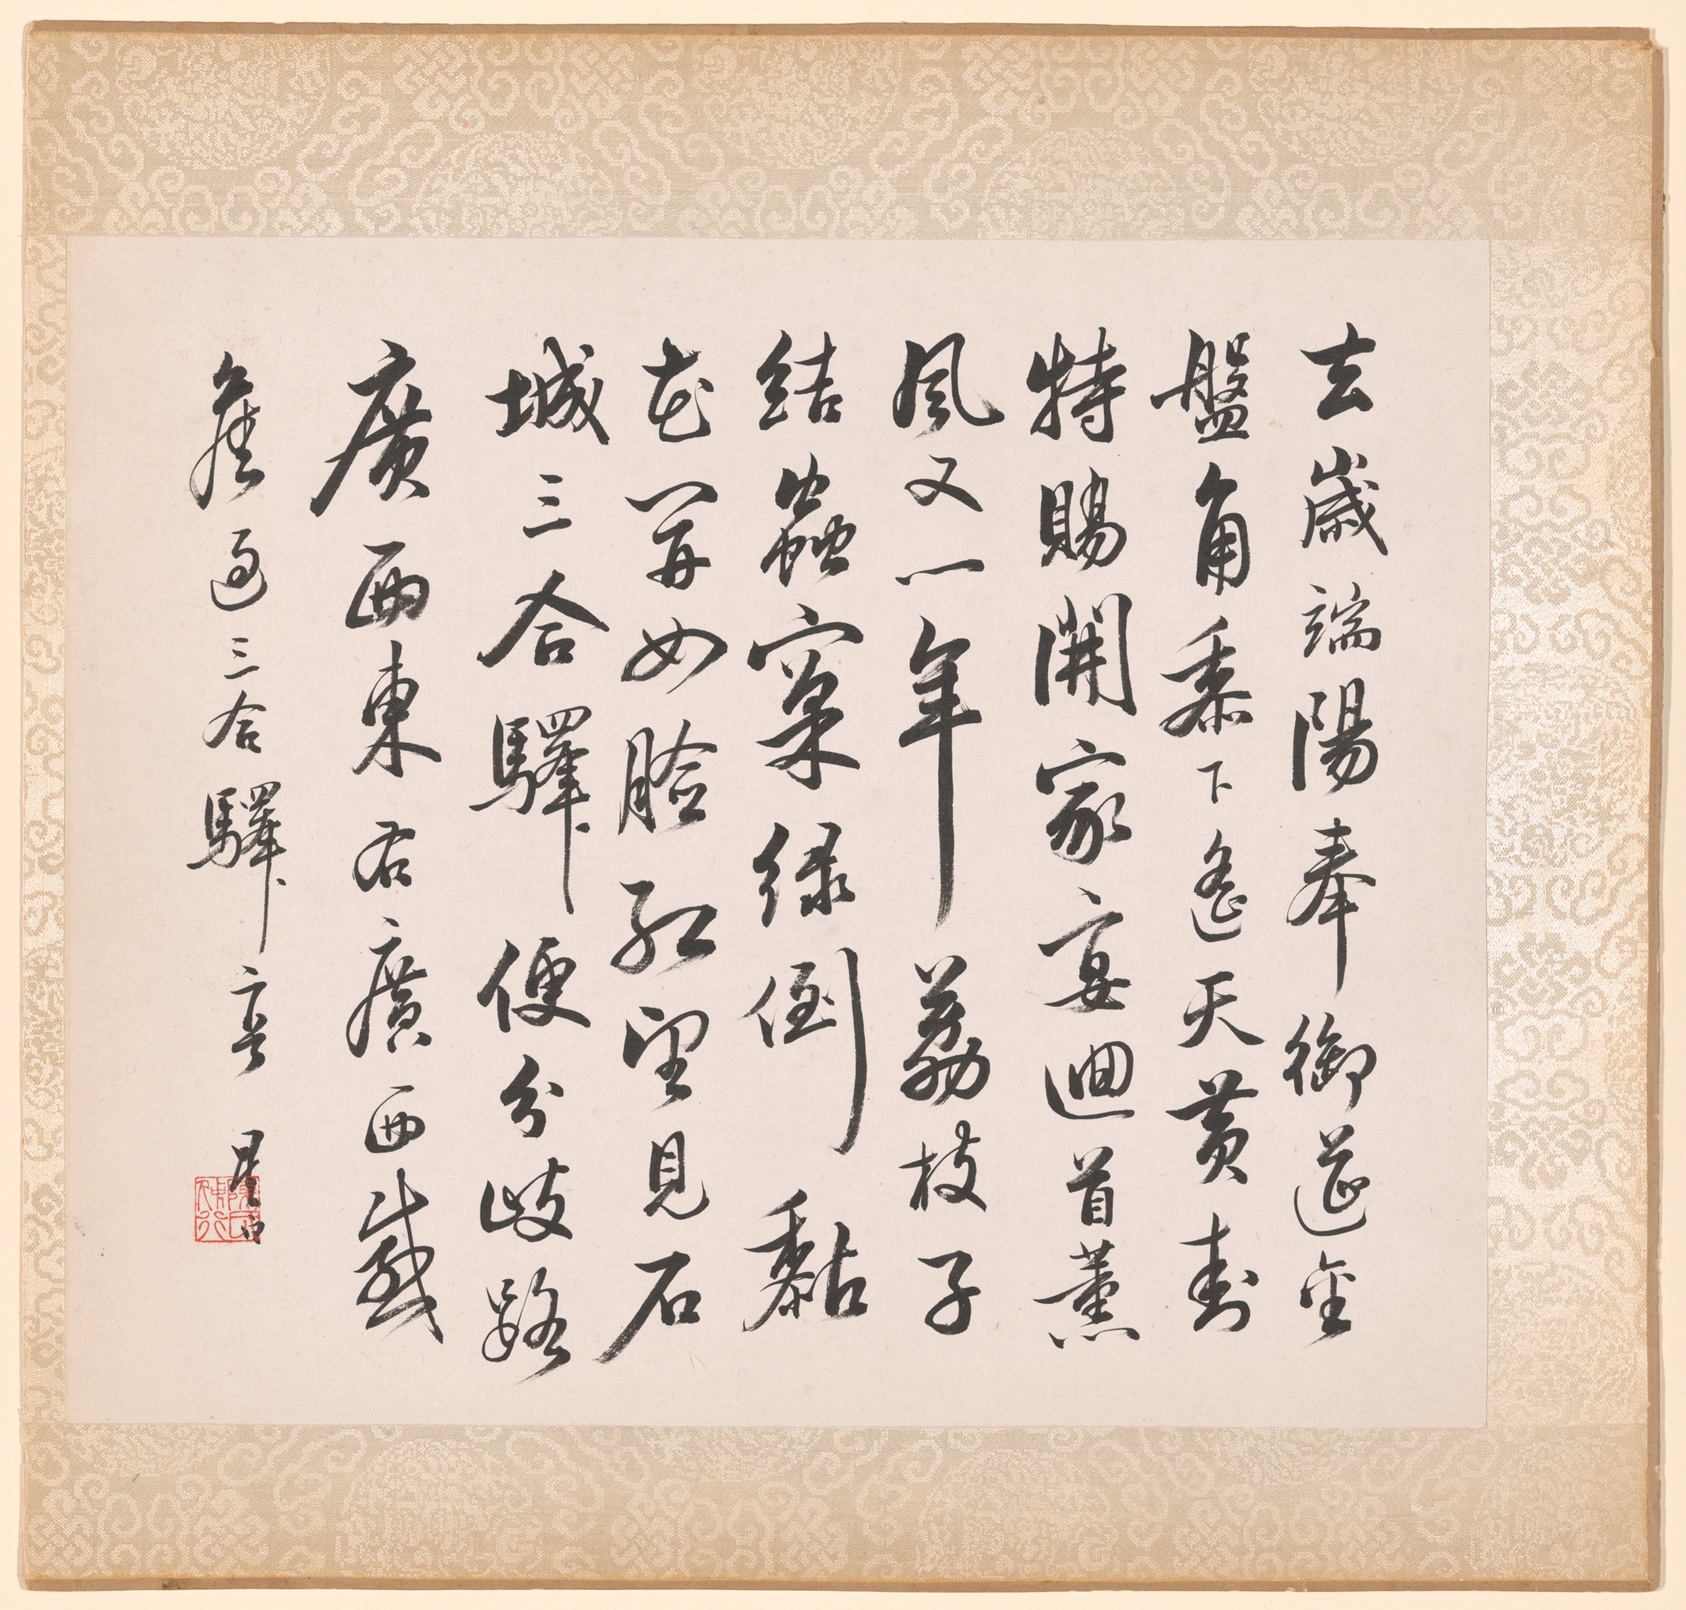 去歲端陽奉御筵金
盤角黍下遙天黃封
特賜開家宴迴首薰
風又一年荔枝子
結蟲窠綠倒黏
花開女臉紅望見石
城三合驛便分歧路
廣西東右廣西感
舊過三合驛